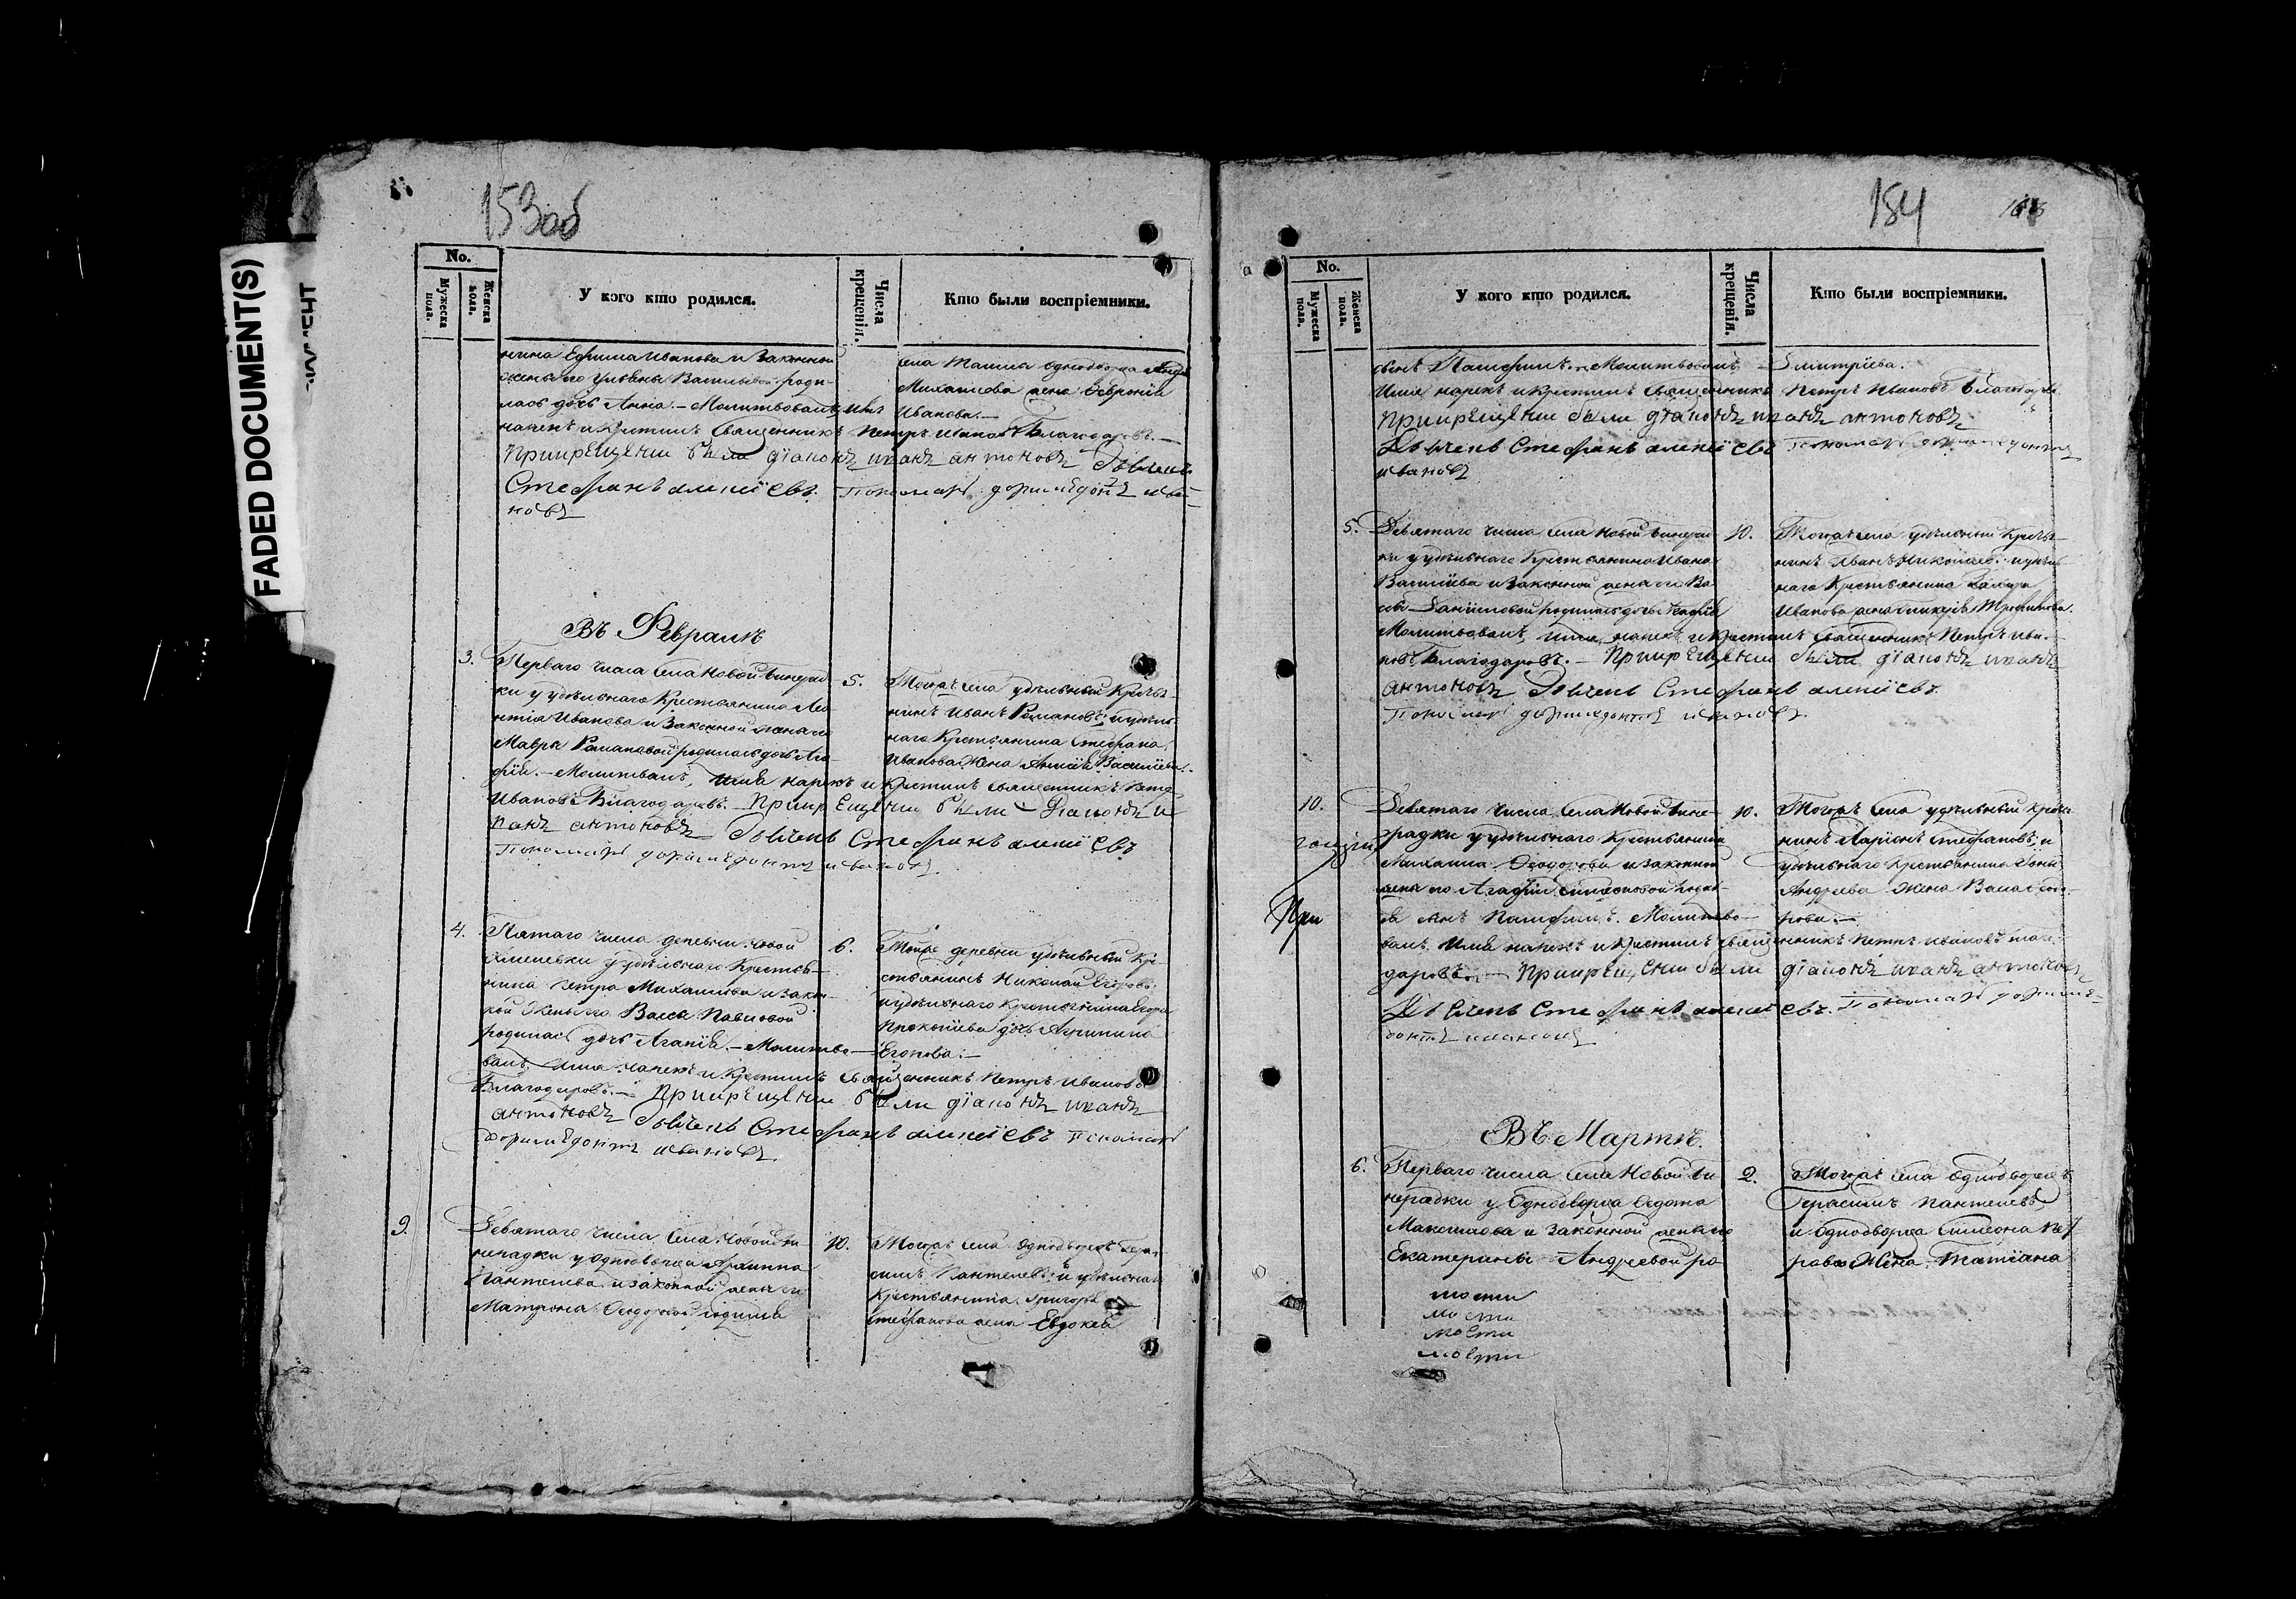 FADED DOCUMENT(S)
153об
No.
Мужеска пола.
Женска пола.
У кого кто родился.
Числа крещенія.
Кто были воспріемники.
нина Ефима Иванова и законной
жены его Ульяны Васильевой роди-
лась дочь Анна. – Молитвовалъ имя
нарекъ и крестилъ Священникъ Петръ Ивановъ Благодаровъ. –
села однодворца
Михайлова жена Февронія
Иванова. –
При крещеніи были діаконъ иванъ антоновъ Дьячекъ
Стефанъ алексіевъ. Пономарь доримедонтъ ива-
новъ
Въ Февралѣ
3.
Перваго числа села Новой
ки у удѣльнаго Крестьянина Лео
нтія Иванова и законной жены его
Мавры Романовой родилась дочь Ага
фія. – Молитвовалъ, имя нарекъ и крестилъ священникъ Петръ
Ивановъ Благодаровъ. – При крещеніи были – діаконъ и
ванъ антоновъ Дьячекъ Стефанъ алексіевъ
Пономарь доримедонтъ ивановъ.
5.
Тогожъ села удѣльный Кресть-
нинъ Иванъ Романовъ; и удѣль-
наго Крестьянина Стефана
Иванова жена Васильева.
4.
Пятаго числа деревни Новой
у удѣльнаго Крестья-
нина Петра Михайлова и закон-
ной жены его Вассы Павловой
родилась дочь Агапія. – Молитво-
валъ, имя нарекъ и Крестилъ священникъ Петръ Ивановъ
Благодаровъ. – При крещеніи были діаконъ иванъ
антоновъ Дьячекъ Стефанъ алексіевъ Пономарь
доримедонтъ ивановъ.
6.
Тойже деревни удѣльный Кре-
стьянинъ Николай Егоровъ
и удѣльнаго Крестьянина Егора
Прокопіева дочь Агрипина
Егорова. –
9.
Девятаго числа, села Новой Ви
нерадки у однодворца Архиппа
Пантелева и законной жены его
Матроны Ѳеодоровой родился
10.
Тогожъ села однодворецъ Гера-
симъ Пантелевъ; и удѣльнаго
Крестьянина Григорья
Стефанова жена Евдокея
184
No.
Мужеска пола.
Женска пола.
У кого кто родился.
Числа крещенія.
Кто были воспріемники.
сынъ Памфилъ. – Молитвовалъ,
Имя нарекъ и Крестилъ Священникъ Петръ Ивановъ Благодаровъ.
Димитріева.
При крещеніи были діаконъ иванъ антоновъ
Дьячекъ Стефанъ алексіевъ Пономарь доримедонтъ
ивановъ
5.
Девятаго числа, села Новой Винерад
ки у удѣльнаго Крестьянина Ивана
Василіева и законной жены его Ва
сы Даниловой родилась дочь
Молитвовалъ, имя нарекъ и крестилъ Священникъ Петръ Ива-
новъ Благодаровъ. – При крещеніи были діаконъ иванъ
антоновъ Дьячекъ Стефанъ алексіевъ.
Пономарь доримедонтъ ивановъ.
10.
Тогожъ села удѣльный Кресть-
нинъ Иванъ Николаевъ; и удѣль
наго Крестьянина
Иванова жена Трофимова.
10.
Девятаго числа, села Новой Вине-
радки у удѣльнаго Крестьянина
Михаила Ѳеодорова и законной
жены его Агафіи Симеоновой родил-
ся сынъ Памфилъ. Молитво-
валъ, имя нарекъ и крестилъ священникъ Петръ Ивановъ Благо-
даровъ. – При крещеніи были діаконъ иванъ антоновъ
Дьячекъ Стефанъ алексіевъ. Пономарь дориме-
донтъ ивановъ
10.
Тогожъ села удѣльный Кресть
нинъ Ларіонъ Стефановъ, и
удѣльнаго Крестьянина Іоны
Андреева жена Васса
рова. –
При
Въ Мартѣ.
6.
Перваго числа села Новой Ви
нерадки у Однодворца Ѳедота
Максимова и законной жены его
Екатерины Андреевой ро
2.
Тогожъ села однодворецъ
Герасимъ Пантелевъ
и однодворца Симеона Пет
рова жена Татіана
мости
мости
мости
мости